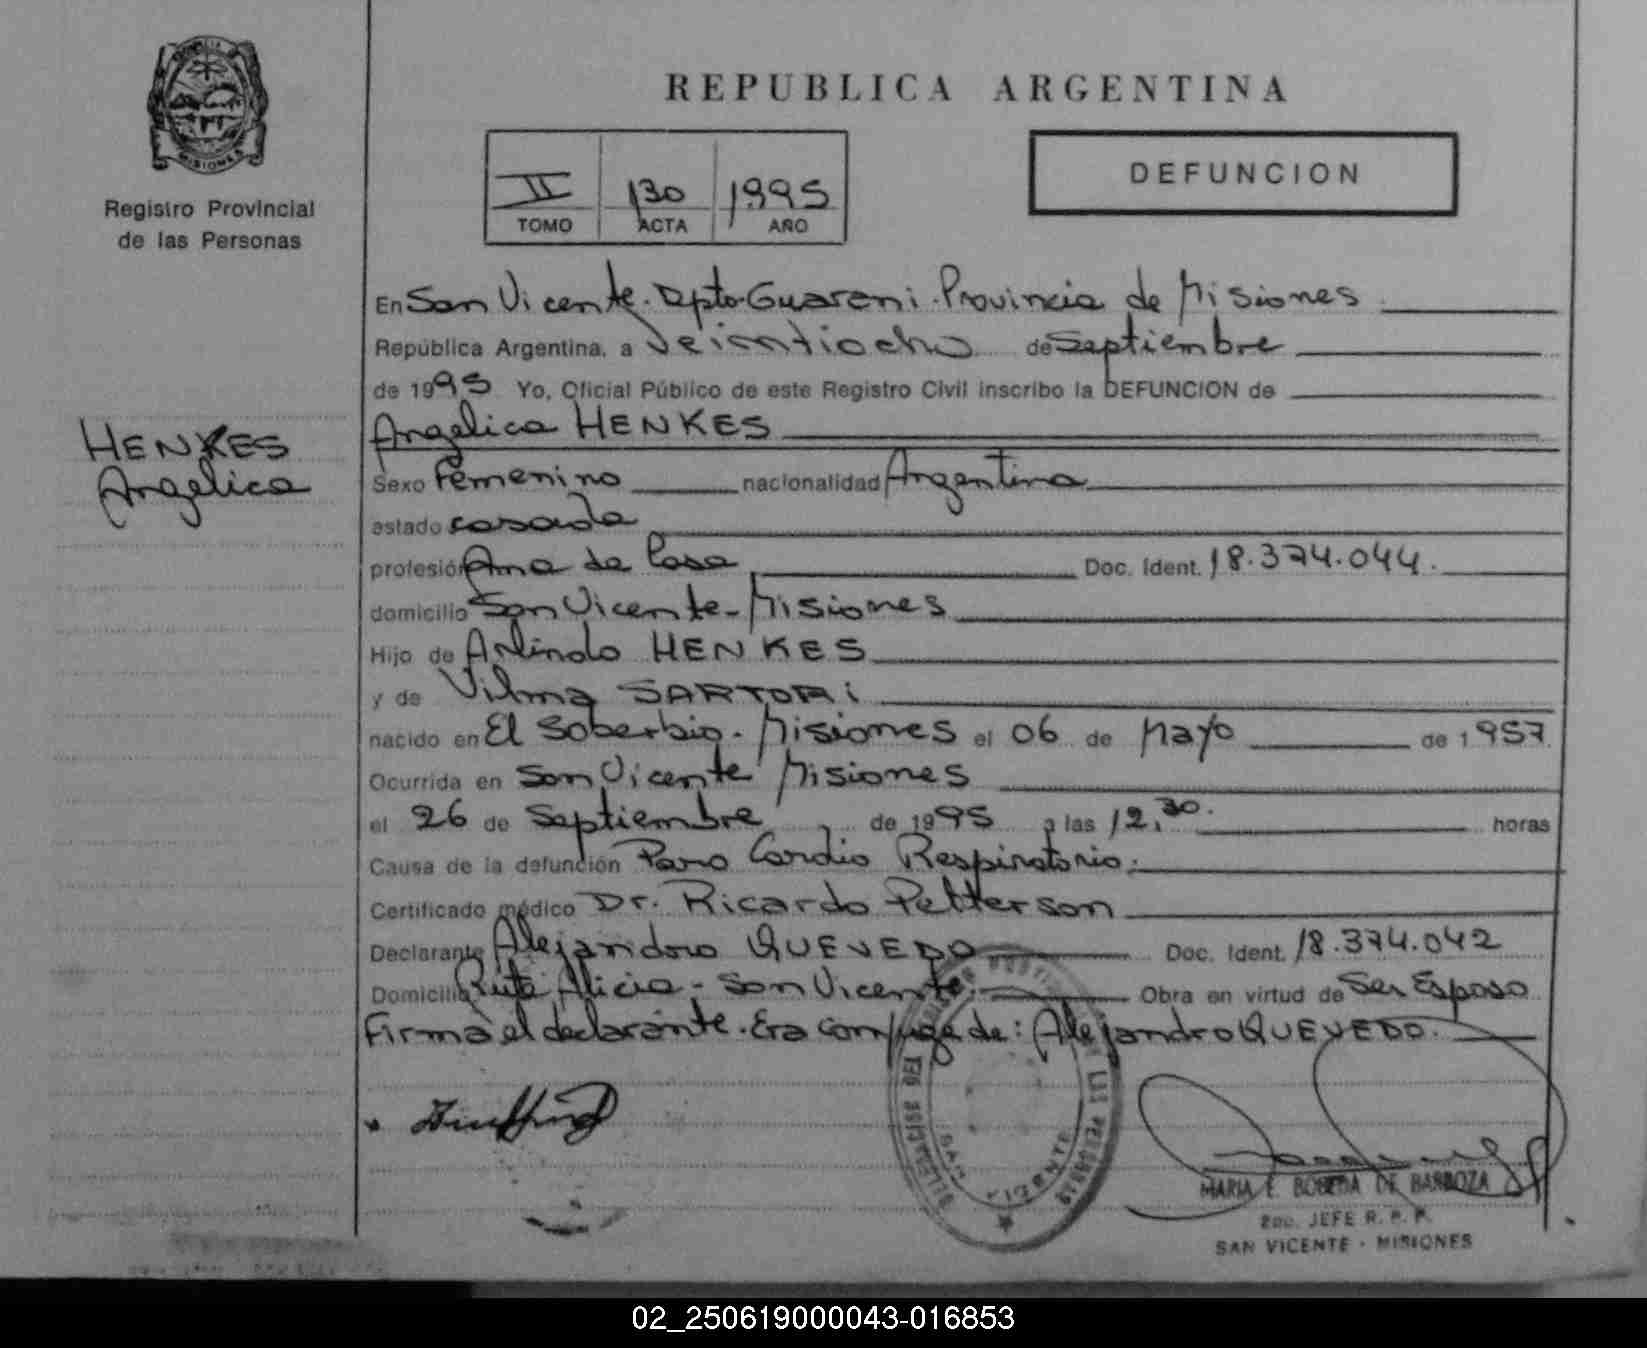 REPUBLICA ARGENTINA
MISIONES
Registro Provincial
de las Personas
II 130 1995
TOMO ACTA AÑO
DEFUNCION
En San Vicente. Dpto. Guarani. Provincia de Misiones
República Argentina, a Veintiocho de Septiembre
de 1995 Yo, Oficial Público de este Registro Civil inscribo la DEFUNCION de
HENKES
Angelica
Angelica HENKES
Sexo Femenino nacionalidad Argentina
estado casada
profesión Ama de Casa Doc. Ident. 18.374.044.
domicilio San Vicente - Misiones
Hijo de Arlindo HENKES
y de Vilma SARTORI
nacido en El Soberbio. Misiones el 06 de Mayo de 1957
Ocurrida en San Vicente Misiones
el 26 de Septiembre de 1995 a las 12,30. horas
Causa de la defunción Paro Cardio Respiratorio.
Certificado médico Dr. Ricardo Petterson
Declarante Alejandro QUEVEDO Doc. Ident. 18.374.042
Domicilio Ruta Alicia - San Vicente. Obra en virtud de Ser Esposo
Firma el declarante. Era Conyuge de: Alejandro QUEVEDO.
SAN VICENTE
MARIA E. BOBEDA DE BARBOZA
2do. JEFE R. P. P.
SAN VICENTE - MISIONES
02_250619000043-016853